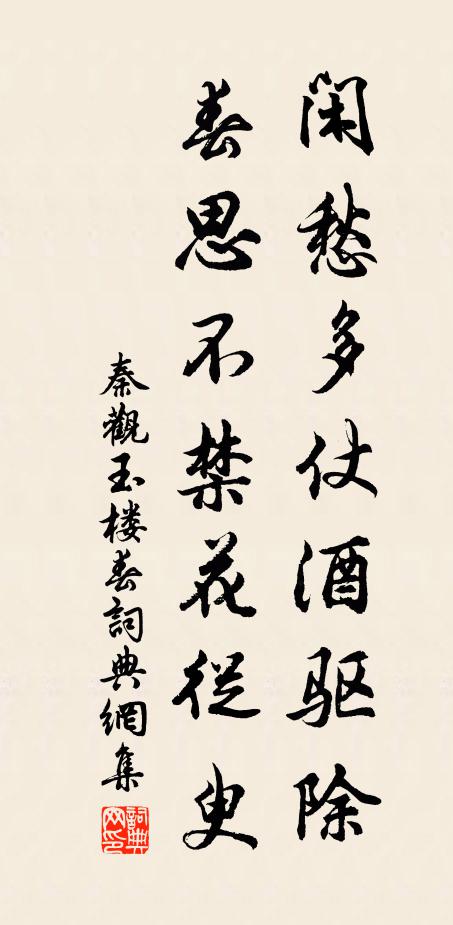 闲愁多仗酒驱除
春思不禁花從臾
秦觀玉楼春詞典網集
詞典网印